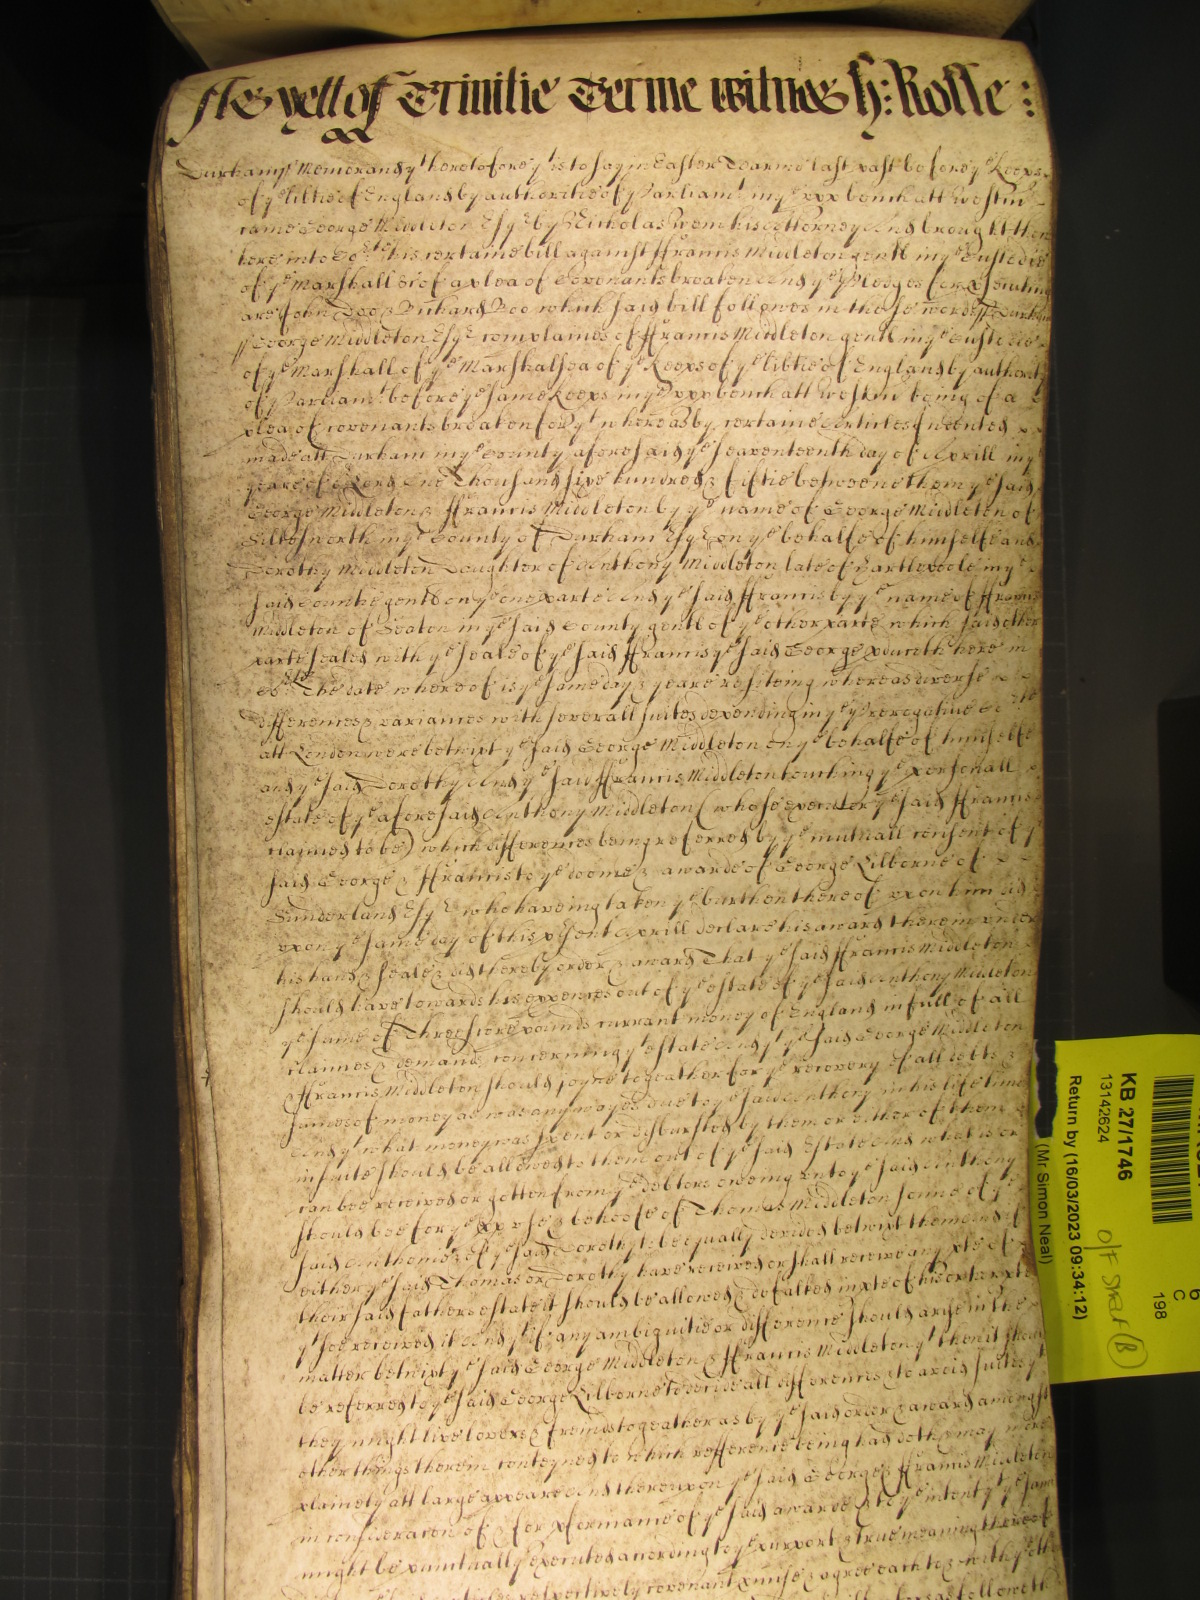 As yett of Trinitie Terme witnes H: Rolle :
Durham ss Memorand yt heretofore yt is to say in Easter Tearme last past before ye Keeps
of ye libtie of England by authoritie of Parliamt in ye upp bench att Westm
came George Middleton Esqr by Nicholas his Attorney And brought then
here into Co:rte his certaine bill against Francis Middleton gentl in ye Custodie
of ye Marshall &c of a plea of Covenants broaken And ye Pledges for psecuting
are John Doo & Richard Roo which said bill followes in these words ss Durham
ss George Middleton Esqr complaines of Francis Middleton gentl in ye Custodie
of ye Marshall of ye Marshalsea of ye Keeps of ye libtie of England by authority
of Parliamt before ye same Keeps in ye upp bench att Westm being of a
plea of covenants broaken for yt whereas by certaine Articles indented
made att Durham in ye County aforesaid ye seaventeenth day of Aprill in ye
yeare of or Lord One Thousand sixe hundred & fiftie betweene them ye said
George Middleton & Francis Middleton by ye name of George Middleton of
Silksworth in ye County of Durham Esqr on ye behalfe of himselfe and
Dorothy Middleton Daughter of Anthony Middleton late of Hartlepoole in ye
said Countie gent on ye one parte And ye said Francis by ye name of Francis
Middleton of Seaton in ye said County gentl of ye other parte which said other
parte sealed with ye seale of ye said Francis ye said George pduceth here in
Corte The date whereof is ye same day & yeare reciteing whereas diverse
differences & variances with severall suites depending in ye Prerogative Corte
att London were betwixt ye said George Middleton on ye behalfe of himselfe
and ye said Dorothy And ye said Francis Middleton touching ye personall
estate of ye aforesaid Anthony Middleton (whose executor ye said Francis
claimed to be) which differences being referred by ye mutuall consent of ye
said George & Francis to ye doome & awarde of George Lilborne of
Sunderland Esqr who haveing taken ye burthen thereof upon him did
upon ye same day of this psent Aprill declare his award therein under
his hand & seale & did thereby order & award That ye said Francis Middleton
should have towards his expences out of ye estate of ye said Anthony Middleton
ye sume of Threescore pounds currant money of England in full of all
claimes & demands concerning ye estate And yt ye said George Middleton
& Francis Middleton should joyne togeather for ye recovery of all debts &
sumes of money as was any wayes due to ye said Anthony in his life time
And yt what money was spent or disbursted by them or either of them
in suite should be allowed to them out of ye said Estate And what is or
can bee received or gotten from ye debtors oweing unto ye said Anthony
should bee for ye use & behoofe of Thomas Middleton sonne of ye
said Anthonie & of ye said Dorothy to be equally devided betwixt them and if
either ye said Thomas or Dorothy have received or shall receive any pte of
their said fathers estate it should be allowed & defalked in pte of his or her pte
yt soe received it And yt if any ambiguitie or difference should arise in the
matter betwixt ye said George Middleton & Francis Middleton yt then it should
be referred to ye said George Lilborne to decide all differences & to avoid suites yt
they might live lovers & freinds togeather as by ye said order & award amongst
other things therein conteyned to which refference being had doth & may more
plainely att large appeare And thereupon ye said George & Francis Middleton
in consideracon of & for pformance of ye said awarde & to ye intent yt ye same
might be punctually executed according to ye purport & true meaning thereof
respectively covenant pmise & agree each to & with ye other
as followeth
KB 27/1746
13142624
Return by (16/03/2023 09:34:12)
(Mr Simon Neal)
6
C
198